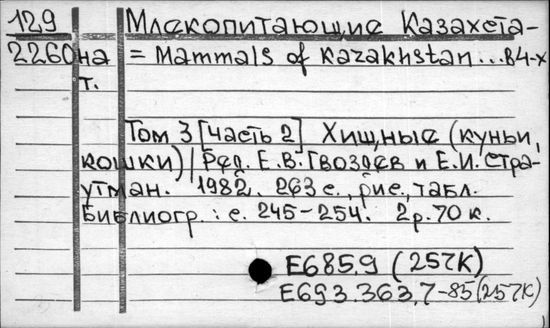 129 Млекопитающие Казахста-
2260 на = Mammals of Kazakhstan...в4-х
т.
Том 3 [Часть 2] Хищные (куньи,
кошки) / Ред. Е.В. Гвоздев и Е.И. Стра-
утман. 1982. 263 с., рис., табл.
Библиогр.: с. 245-254. 2р. 70 к.
Е685.9 (257К)
Е693.363.7-85(257К)